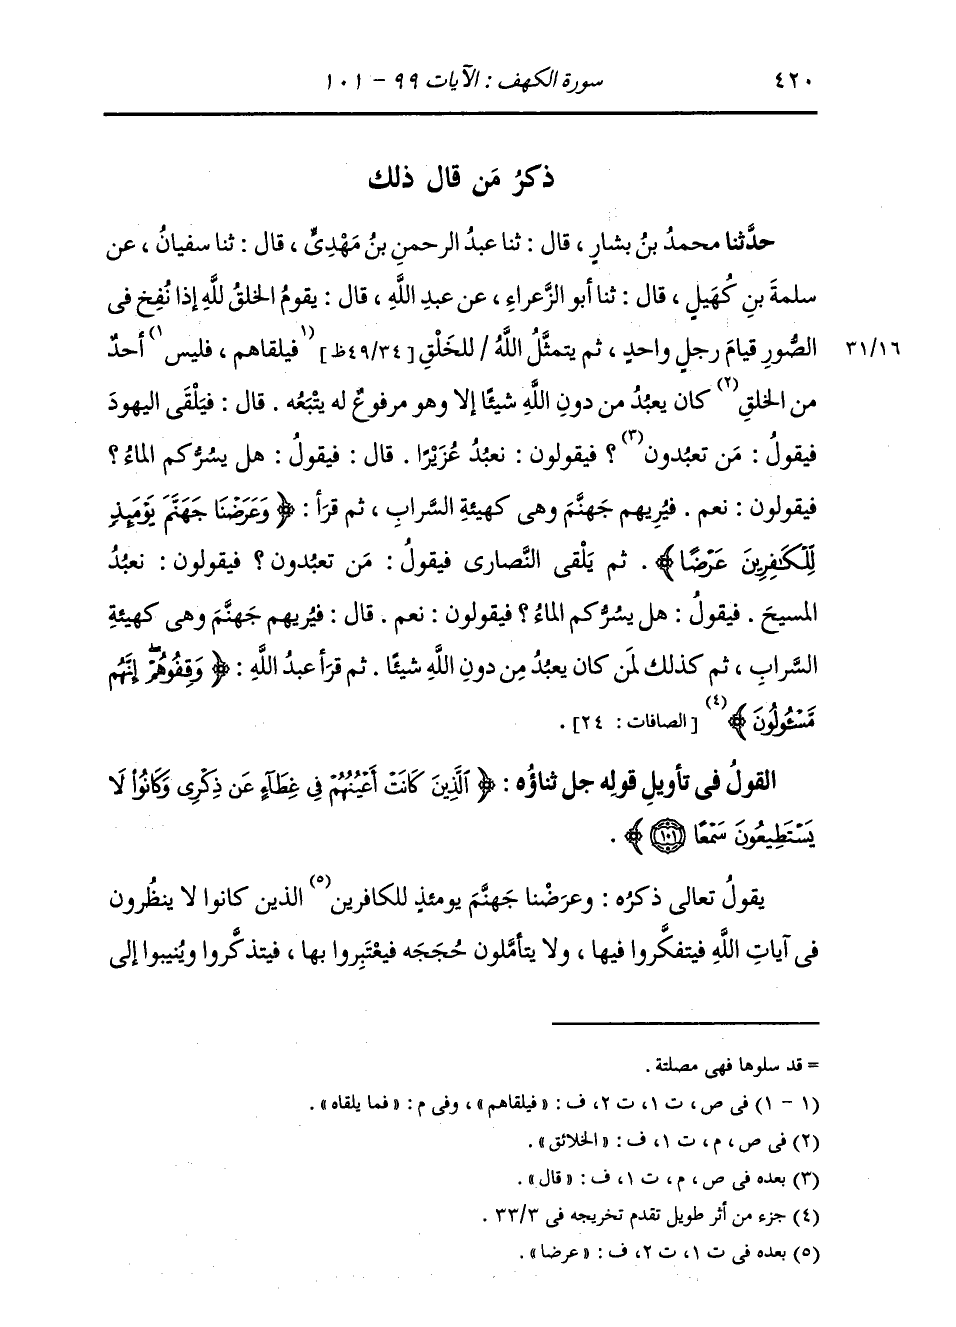 ٤٢٠ سورة الكهف : الآيات ٩٩ - ١٠١
ذكرُ مَن قال ذلك
حدَّثنا محمدُ بنُ بشارٍ ، قال : ثنا عبدُ الرحمنِ بنُ مَهْدِىٍّ ، قال : ثنا سفيانُ ، عن
سلمةَ بنِ كُهَيلٍ ، قال : ثنا أبو الزَّعراءِ ، عن عبدِ اللَّهِ ، قال : يقومُ الخلقُ للَّهِ إذا نُفِخ فى
الصُّورِ قيامَ رجلٍ واحدٍ ، ثم يتمثَّلُ اللَّهُ / للخَلْقِ [٤٩/٣٤ظ] (١) فيلقاهم ، فليس (١) أحدٌ ٣١/١٦
من الخلقِ (٢) كان يعبُدُ من دونِ اللَّهِ شيئًا إلا وهو مرفوعٌ له يتْبَعُه . قال : فيَلْقَى اليهودَ
فيقولُ : مَن تعبُدون (٣) ؟ فيقولون : نعبُدُ عُزَيْرًا . قال : فيقولُ : هل يسُرُّكم الماءُ ؟
فيقولون : نعم . فيُرِيهم جَهنَّمَ وهى كهيئةِ السَّرابِ ، ثم قرَأ : ﴿ وَعَرَضْنَا جَهَنَّمَ يَوْمَئِذٍ
لِّلْكَٰفِرِينَ عَرْضًا ﴾ . ثم يَلْقى النَّصارى فيقولُ : مَن تعبُدون ؟ فيقولون : نعبُدُ
المسيحَ . فيقولُ : هل يسُرُّكم الماءُ ؟ فيقولون : نعم . قال : فيُريهم جَهنَّمَ وهى كهيئةِ
السَّرابِ ، ثم كذلك لمَن كان يعبُدُ مِن دونِ اللَّهِ شيئًا . ثم قرَأ عبدُ اللَّهِ : ﴿ وَقِفُوهُمْ ۖ إِنَّهُم
مَّسْـُٔولُونَ ﴾ (٤) [الصافات : ٢٤] .
القولُ فى تأويلِ قولِه جل ثناؤُه : ﴿ ٱلَّذِينَ كَانَتْ أَعْيُنُهُمْ فِى غِطَآءٍ عَن ذِكْرِى وَكَانُوا۟ لَا
يَسْتَطِيعُونَ سَمْعًا ١٠١ ﴾ .
يقولُ تعالى ذكرُه : وعرَضْنا جَهنَّمَ يومئذٍ للكافرين (٥) الذين كانوا لا ينظُرون
فى آياتِ اللَّهِ فيتفكَّروا فيها ، ولا يتأمَّلون حُجَجَه فيعْتَبِروا بها ، فيتذكَّروا ويُنيبوا إلى
= قد سلوها فهى مصلتة .
(١ - ١) فى ص، ت ١، ت ٢، ف : « فيلقاهم » ، وفى م : « فما يلقاه » .
(٢) فى ص ، م ، ت ١، ف : « الخلائق » .
(٣) بعده فى ص ، م ، ت ١، ف : « قال » .
(٤) جزء من أثر طويل تقدم تخريجه فى ٣٣/٣ .
(٥) بعده فى ت ١، ت ٢، ف : « عرضا » .